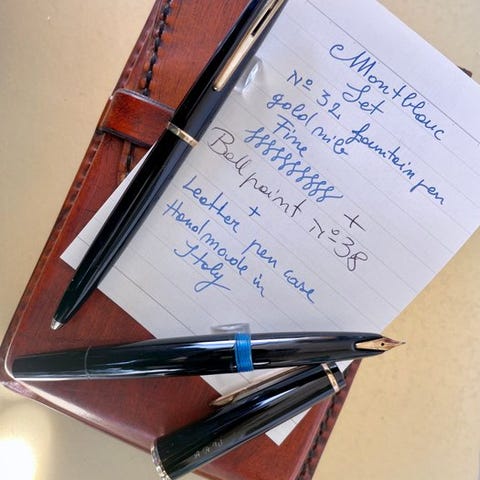 Montblanc
Set
№ 32 fountain pen
gold nib
Fine
ssssssssss
+
Ballpoint №38
+
Leather pen case
Handmade in
Italy